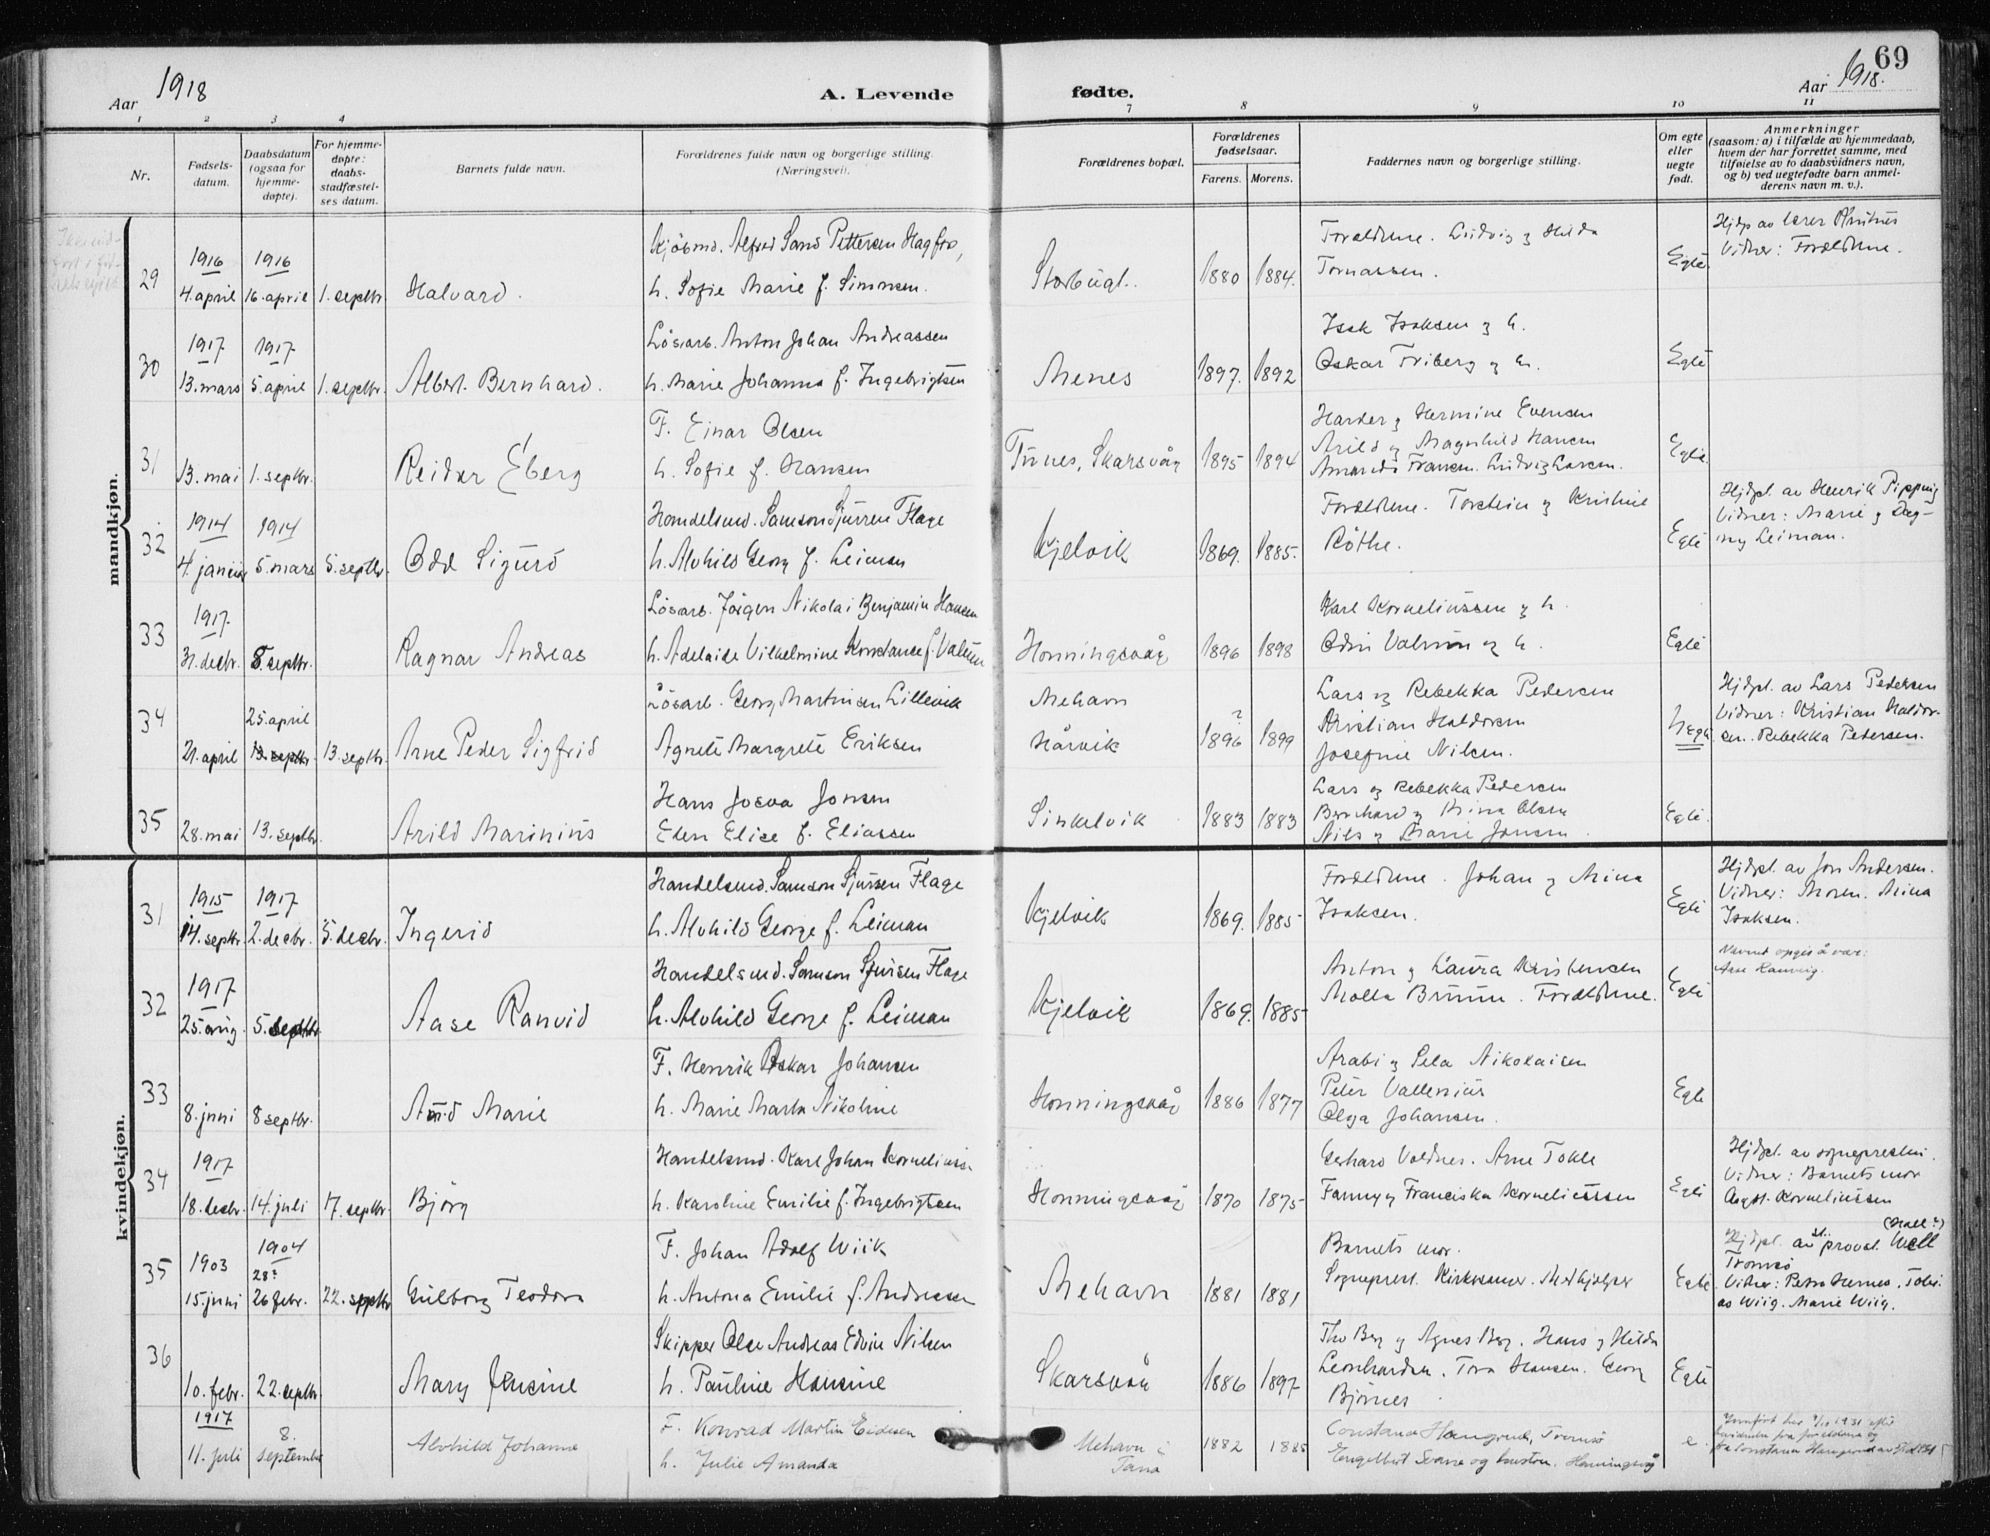 69
Aar 1918
A. Levende fødte.
Aar 1918.
1 2 3 4 7 8 9 10 11
Nr.
Fødsels-
datum.
Daabsdatum
(ogsaa for
hjemme-
døpte).
For hjemme-
døpte:
daabs-
stadfæstel-
ses datum.
Barnets fulde navn.
Forældrenes fulde navn og borgerlige stilling.
(Næringsvei).
Forældrenes bopæl.
Forældrenes
fødselsaar.
Farens. Morens.
Faddernes navn og borgerlige stilling.
Om egte
eller
uegte
født.
Anmerkninger
(saasom: a) i tilfælde av hjemmedaab,
hvem der har forrettet samme, med
tilføielse av to daabsvidners navn,
og b) ved uegtefødte barn anmel-
derens navn m. v.).
mandkjøn.
29
1916 1916
4. april 16. april 1. septbr Halvard.
Kjøbmd. Alfred Sand Pettersen Hagfors,
h. Sofie Marie f. Simonsen.
Storbugt. 1880 1884.
Forældrene. Ludvig og Hilda
Tomassen.
Egte
Hjdp av lærer
Vidner: Forældrene.
30
1917 1917
13. mars 5. april 1. septbr. Albert Bernhard.
Løsarb. Anton Johan Andreassen
h. Marie Johanna f. Ingebrigtsen
Menes 1897. 1892
Isak Isaksen og h.
Oskar Friberg og h.
Egte
31
13. mai 1. septbr. Reidar Eberg
F. Einar Olsen
h. Sofie f. Hansen
Tunes, Skarsvåg 1895 1894
Harder og Hermine Evensen
Arild og Magnhild Hansen
Amandus Fransen. Ludvig Larsen.
Egte
32
1914 1914
4. januar 5. mars 5. septbr. Odd Sigurd
Handelsmd. Samson Sjursen Flage
h. Alvhild Georg f. Leiman
Kjelvik 1869. 1885.
Forældrene. Torstein og Kristine
Røthe.
Egte
Hjdpt. av Henrik Pipping
Vidner: Marie og Dag-
ny Leiman.
33
1917.
31. decbr. 8. septbr. Ragnar Andreas
Løsarb. Jørgen Nikolai Benjamin Hansen
h. Adelaide Vilhelmine Konstanse f. Valnum
Honningsvaag 1896 1898
Karl Korneliussen og h.
Odin Valnum og h.
Egte
34
25. april
21. april 13. septbr. 13. septbr. Arne Peder Sigfrid
Løsarb. Georg Martinsen Lillevik
Agnete Margrete Eriksen
Mehavn
Hårvik
? 1896 1899
Lars og Rebekka Pedersen
Kristian Haldorsen
Josefine Nilsen.
Uegte
Hjdpt. av Lars Pedersen
Vidner: Kristian Haldor-
sen. Rebekka Pedersen.
35
28. mai 13. septbr. Arild Marinius
Hans Josva Jonsen
Eden Elise f. Eliassen
Sinkelvik 1883 1883
Lars og Rebekka Pedersen
Bernhard og Nina Olsen
Nils og Marie Jonsen.
Egte.
kvindekjøn.
31
1915 1917
14. septbr. 2. decbr. 5. decbr. Ingerid
Handelsmd. Samson Sjursen Flage
h. Alvhild George f. Leiman
Kjelvik 1869. 1885
Forældrene. Johan og Mina
Isaksen.
Egte
Hjdpt. av Jon Andersen.
Vidner: Moren. Mina
Isaksen.
32
1917
25. aug. 5. septbr. Aase Ranvid
Handelsmd. Samson Sjursen Flage
h. Alvhild George f. Leiman
Kjelvik 1869. 1885
Anton og Laura Kristensen
Molla Bruun. Forældrene.
Egte
Navnet opgis å være:
Aase Ranveig.
33
8. juni 8 septbr. Marie
F. Henrik Oskar Johansen
h. Marie Marta Nikoline
Honningsvåg 1886 1877
Arabi og Sela Nikolaisen
Peter Vallenius
Olga Johansen.
Egte
34
1917
18. decbr. 14. juli 17. septbr. Bjørg
Handelsmd. Karl Johan Korneliussen
h. Karoline Emilie f. Ingebrigtsen
Honningsvåg 1870 1875
Gerhard Voldnes. Arne Tokle
Fanny og Franciska Korneliussen
Egte
Hjdpt. av sognepresten.
Vidner: Barnets mor
Aagot. Korneliussen
35
1903 1904
28?
15. juni 26 febr. 22. septbr Gulborg Teodora
F. Johan Adolf Wiik
h. Antona Emilie f. Andreasen
Mehavn 1881 1881
Barnets mor.
Sogneprest. Kirkesanger. Medhjelper
Egte
(Hall?)
Hjdpt. av st. provst Well
Tromsø
Vidner: Petra Hernes. Tobi-
as Wiig. Marie Wiig.
36
10. febr. 22. septbr. Mary Jensine
Skipper Olse Andreas Edvin Nilsen
h. Pauline Hansine
Skarsvåg 1886 1897
Tho Berg og Agnes Berg. Hans og Hilda
Leonhardsen. Tora Hansen. Georg
Bjørnes
Egte
1917 8.
11. juli september Alvhild Johanne
F. Konrad Martin Eidesen
h. Julie Amanda
Mehavn i
Tana
1882 1885
Constance Haugrud, Tromsø
Engelbert Svane og hustru. Honningsvåg
e.
Innført her 1931 efter